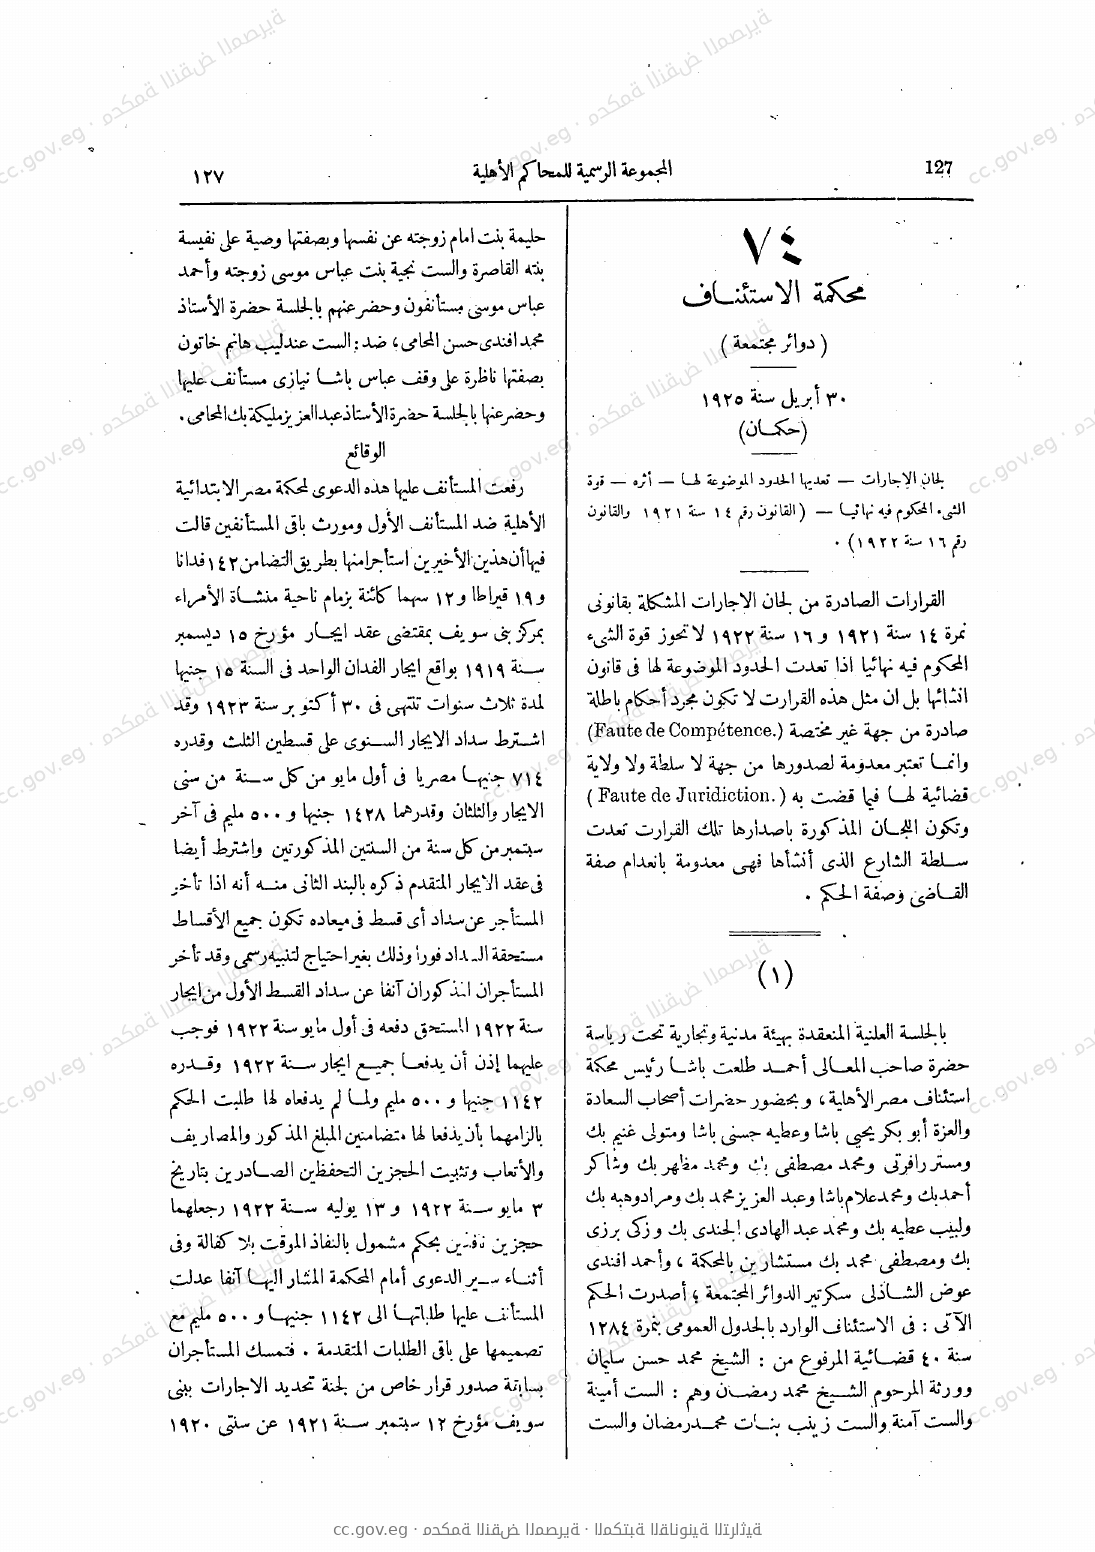 127
المجموعة الرسمية للمحاكم الأهلية
١٢٧
٧٤
محكمة الاستئناف
(دوائر مجتمعة)
٣٠ أبريل سنة ١٩٢٥
(حكمان)
لجان الاجارات — تعديها الحدود الموضوعة لها — أثره — قوة
الشىء المحكوم فيه نهائيا — (القانون رقم ١٤ سنة ١٩٢١ والقانون
رقم ١٦ سنة ١٩٢٢) .
القرارات الصادرة من لجان الاجارات المشكلة بقانونى
نمرة ١٤ سنة ١٩٢١ و ١٦ سنة ١٩٢٢ لا تحوز قوة الشىء
المحكوم فيه نهائيا اذا تعدت الحدود الموضوعة لها فى قانون
انشائها بل ان مثل هذه القرارت لا تكون مجرد أحكام باطلة
صادرة من جهة غير مختصة (Faute de Compétence.)
وانما تعتبر معدومة لصدورها من جهة لا سلطة ولا ولاية
قضائية لها فيما قضت به (Faute de Juridiction.)
وتكون اللجان المذكورة باصدارها تلك القرارت تعدت
سلطة الشارع الذى أنشأها فهى معدومة بانعدام صفة
القاضى وصفة الحكم .
(١)
بالجلسة العلنية المنعقدة بهيئة مدنية وتجارية تحت رياسة
حضرة صاحب المعالى أحمد طلعت باشا رئيس محكمة
استئناف مصر الأهلية ، وبحضور حضرات أصحاب السعادة
والعزة أبو بكر يحيى باشا وعطيه حسنى باشا ومتولى غنيم بك
ومستر رافرتى ومحمد مصطفى بك ومحمد مظهر بك وشاكر
أحمد بك ومحمد علام باشا وعبد العزيز محمد بك ومراد وهبه بك
ولبيب عطيه بك ومحمد عبد الهادى الجندى بك وزكى برزى
بك ومصطفى محمد بك مستشارين بالمحكمة ، وأحمد افندى
عوض الشاذلى سكرتير الدوائر المجتمعة ؛ أصدرت الحكم
الآتى : فى الاستئناف الوارد بالجدول العمومى بنمرة ١٢٨٤
سنة ٤٠ قضائية المرفوع من : الشيخ محمد حسن سليمان
وورثة المرحوم الشيخ محمد رمضان وهم : الست أمينة
والست آمنة والست زينب بنات محمد رمضان والست
حليمة بنت امام زوجته عن نفسها وبصفتها وصية على نفيسة
بنته القاصرة والست نجية بنت عباس موسى زوجته وأحمد
عباس موسى مستأنفون وحضر عنهم بالجلسة حضرة الأستاذ
محمد افندى حسن المحامى ، ضد : الست عندليب هانم خاتون
بصفتها ناظرة على وقف عباس باشا نيازى مستأنف عليها
وحضر عنها بالجلسة حضرة الأستاذ عبد العزيز مليكة بك المحامى .
الوقائع
رفعت المستأنف عليها هذه الدعوى لمحكمة مصر الابتدائية
الأهلية ضد المستأنف الأول ومورث باقى المستأنفين قالت
فيها أن هذين الأخيرين استأجرا منها بطريق التضامن ١٤٢ فدانا
و ١٩ قيراطا و ١٢ سهما كائنة بزمام ناحية منشاة الأمراء
بمركز بنى سويف بمقتضى عقد ايجار مؤرخ ١٥ ديسمبر
سنة ١٩١٩ بواقع ايجار الفدان الواحد فى السنة ١٥ جنيها
لمدة ثلاث سنوات تنتهى فى ٣٠ أكتوبر سنة ١٩٢٣ وقد
اشترط سداد الايجار السنوى على قسطين الثلث وقدره
٧١٤ جنيها مصريا فى أول مايو من كل سنة من سنى
الايجار والثلثان وقدرهما ١٤٢٨ جنيها و ٥٠٠ مليم فى آخر
سبتمبر من كل سنة من السنتين المذكورتين واشترط أيضا
فى عقد الايجار المتقدم ذكره بالبند الثانى منه أنه اذا تأخر
المستأجر عن سداد أى قسط فى ميعاده تكون جميع الأقساط
مستحقة السداد فورا وذلك بغير احتياج لتنبيه رسمى وقد تأخر
المستأجران المذكوران آنفا عن سداد القسط الأول من ايجار
سنة ١٩٢٢ المستحق دفعه فى أول مايو سنة ١٩٢٢ فوجب
عليهما إذن أن يدفعا جميع ايجار سنة ١٩٢٢ وقدره
١١٤٢ جنيها و ٥٠٠ مليم ولما لم يدفعاه لها طلبت الحكم
بالزامهما بأن يدفعا لها متضامنين المبلغ المذكور والمصاريف
والأتعاب وتثبيت الحجزين التحفظين الصادرين بتاريخ
٣ مايو سنة ١٩٢٢ و ١٣ يوليه سنة ١٩٢٢ وجعلهما
حجزين نافذين بحكم مشمول بالنفاذ الموقت بلا كفالة وفى
أثناء سير الدعوى أمام المحكمة المشار اليها آنفا عدلت
المستأنف عليها طلباتها الى ١١٤٢ جنيها و ٥٠٠ مليم مع
تصميمها على باقى الطلبات المتقدمة . فتمسك المستأجران
بسابقة صدور قرار خاص من لجنة تحديد الاجارات ببنى
سويف مؤرخ ١٢ سبتمبر سنة ١٩٢١ عن سنتى ١٩٢٠
cc.gov.eg · محكمة النقض المصرية · المكتبة القانونية التراثية